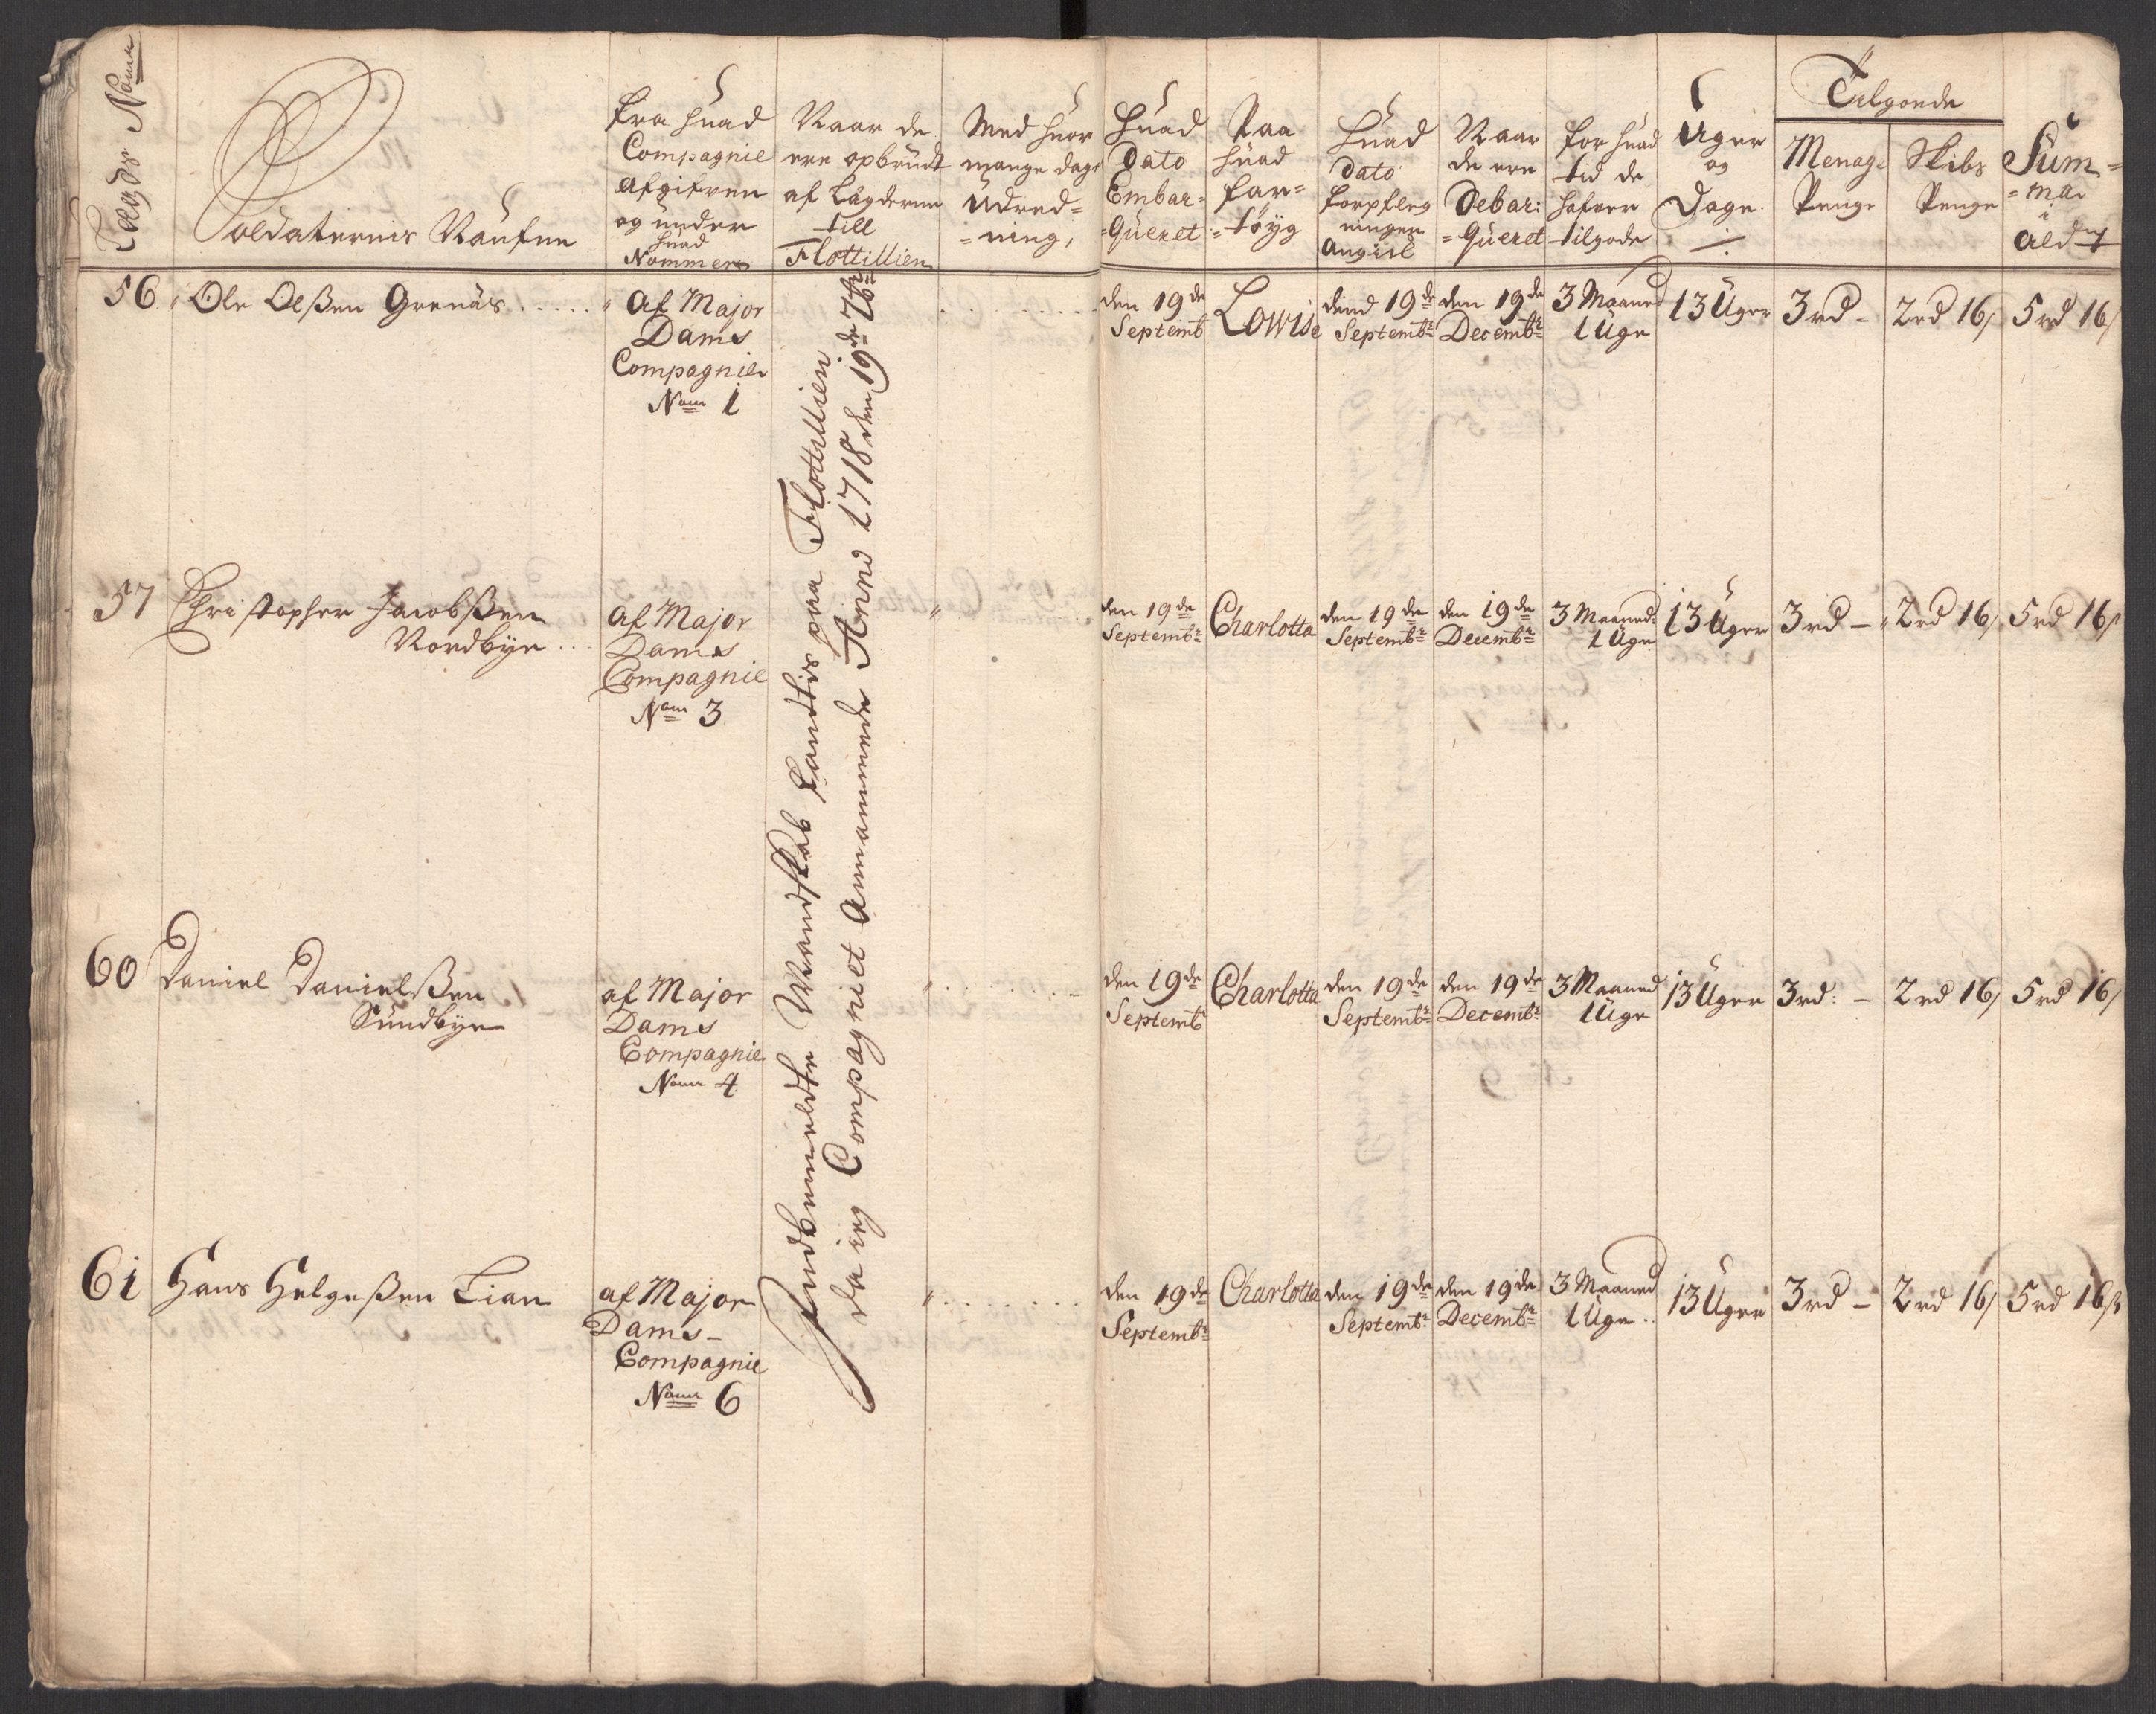 Lægds Nomr
Soldaternis Naufne
fra huad
Compagnie
afgifven
og under
huad
Nommer
Naar de
ere opbrudt
af Lægderne
till
Flottillien
Med huor
mange dags
Udred=
=ning,
Huad
Dato
Embar=
=Queret
Paa
huad
far=
=töyg
Huad
Dato
forpfleg
ningen
angiel
Naar
de ere
Debar:
=Queret
for huad
tid de
hafver
tilgode
Uger
og
Dage.
Tilgode
Menage
Penge
Skibs
Penge
Sum=
=ma
ald
56 Ole Olßen Grenäs .....
af Major
Dams
Compagnie
Nom 1
den 19de
Septemb
Lowise
dend 19de
Septembr
den 19de
Decembr
3 Maaned
1 Uge
13 Uger
3rd -
2rd 16/
5rd 16/
57 Christopher Jacobßen
Nordbye ..
af Major
Dams
Compagnie
Nom 3
den 19de
Septembr
Charlotta
den 19de
Septembr
den 19de
Decembr
3 Maaned:
1 Uge
13 Uger
3rd -
2rd 16/
5rd 16/
60 Daniel Danielßen
Sundbye
af Major
Dams
Compagnie
Nom 4
den 19de
Septembr
Charlotta
den 19de
Septembr
den 19de
Decembr
3 Maaned
1 Uge
13 Uger
3rd: -
2rd 16/
5rd 16/
61 Hans Helgeßen Lian
af Major
Dams-
Compagnie
Nomr 6
den 19de
Septembr
Charlotta
den 19de
Septembr
den 19de
Decembr
3 Maaned
1 Uge ..
13 Uger
3rd -
2rd 16/
5rd 16ß
Indbemeldte Mandskab fantis paa Flottillien
da ieg Compagniet Annammede Anno 1718 den 19de 7br